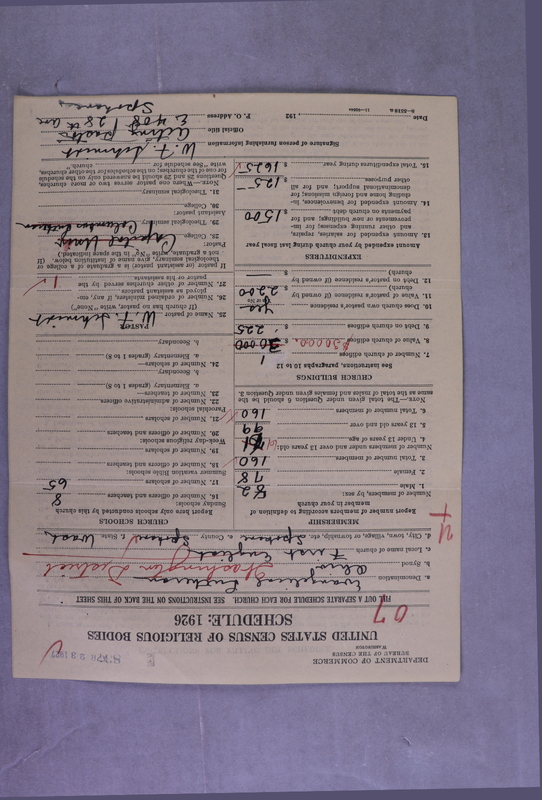 DEPARTMENT OF COMMERCE
BUREAU OF THE CENSUS
WASHINGTON
UNITED STATES CENSUS OF RELIGIOUS BODIES
SCHEDULE: 1926
07
FILL OUT A SEPARATE SCHEDULE FOR EACH CHURCH. SEE INSTRUCTIONS ON THE BACK OF THIS SHEET
a. Denomination Evangelical Lutheran
b. Synod Ohio Washington District
c. Local name of church First English
d. City, town, village, or township, etc. Spokane e. County Spokane f. State Wash
MEMBERSHIP
Report number of members according to definition of member in your church
Number of members, by sex:
1. Male 82
2. Female 78
3. Total number of members 160
Number of members under and over 13 years old:
4. Under 13 years of age
5. 13 years old and over 99
6. Total number of members 160
NOTE.—The total given under Question 6 should be the same as the total of males and females given under Question 3.
CHURCH BUILDINGS
See instructions, paragraphs 10 to 12
7. Number of church edifices 1
8. Value of church edifices $30000
9. Debt on church edifices $ 225
10. Does church own pastor's residence yes
(Yes or No)
11. Value of pastor's residence (if owned by church) $ 2200
12. Debt on pastor's residence (if owned by church) $ —
EXPENDITURES
Amount expended by your church during last fiscal year
13. Amount expended for salaries, repairs, and other running expenses; for improvements or new buildings; and for payments on church debt $ 1500
14. Amount expended for benevolence, including home and foreign missions; for denominational support; and for all other purposes $ 125
15. Total expenditures during year $ 1625
CHURCH SCHOOLS
Report here only schools conducted by this church
Sunday schools:
16. Number of officers and teachers 8
17. Number of scholars 65
Summer vacation Bible schools:
18. Number of officers and teachers
19. Number of scholars
Week-day religious schools:
20. Number of officers and teachers
21. Number of scholars
Parochial schools:
22. Number of administrative officers
23. Number of teachers—
a. Elementary (grades 1 to 8)
b. Secondary
24. Number of scholars—
a. Elementary (grades 1 to 8)
b. Secondary
PASTOR
25. Name of pastor W. F. Schmidt
(If church has no pastor, write "None")
26. Number of ordained ministers, if any, employed as assistant pastor
27. Number of other churches served by the pastor or his assistants 1
If pastor (or assistant pastor) is a graduate of a college or theological seminary, give name of institution below. (If not a graduate, write "No" in the space indicated.)
Pastor:
28. College Capital Univ.
29. Theological seminary Columbus
Assistant pastor:
30. College
31. Theological seminary
NOTE.—Where one pastor serves two or more churches, Questions 28 and 29 should be answered only on the schedule for one of the churches; on the schedule for the other churches, write "See schedule for church."
Signature of person furnishing information W. F. Schmidt
Official title acting pastor
Date , 192 P. O. Address E. 408 28th Ave
Spokane